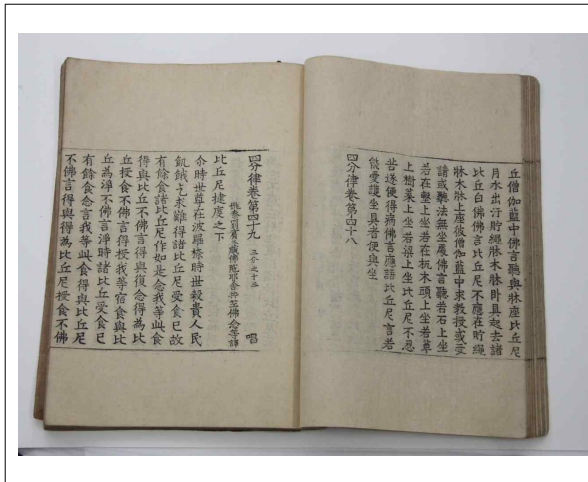 丘僧伽藍中佛言聽與牀座比丘尼
月水出汙貯繩牀木牀臥具起去諸
比丘白佛佛言比丘尼不應在貯繩
牀木牀上座彼僧伽藍中求教授或受
請或聽法無坐處佛言聽若石上坐
若在墼上坐若在杌木頭上坐若草
上樹葉上坐若梁上坐比丘尼不忍
苦遂便得病佛言應語比丘尼言若
能愛護坐具者便與坐
四分律卷第四十八
四分律卷第四十九 三分之十二 唱
姚秦罽賓三藏佛陀耶舍共竺佛念等譯
比丘尼揵度之下
尒時世尊在波羅㮈時世穀貴人民
飢餓乞求難得諸比丘尼受食已故
有餘食諸比丘尼作如是念我等此食
得與比丘不佛言得與復念得為比
丘授食不佛言得授我等宿食與比
丘為淨不佛言淨時諸比丘受食已
有餘食念言我等此食得與比丘尼
不佛言得與得為比丘尼授食不佛